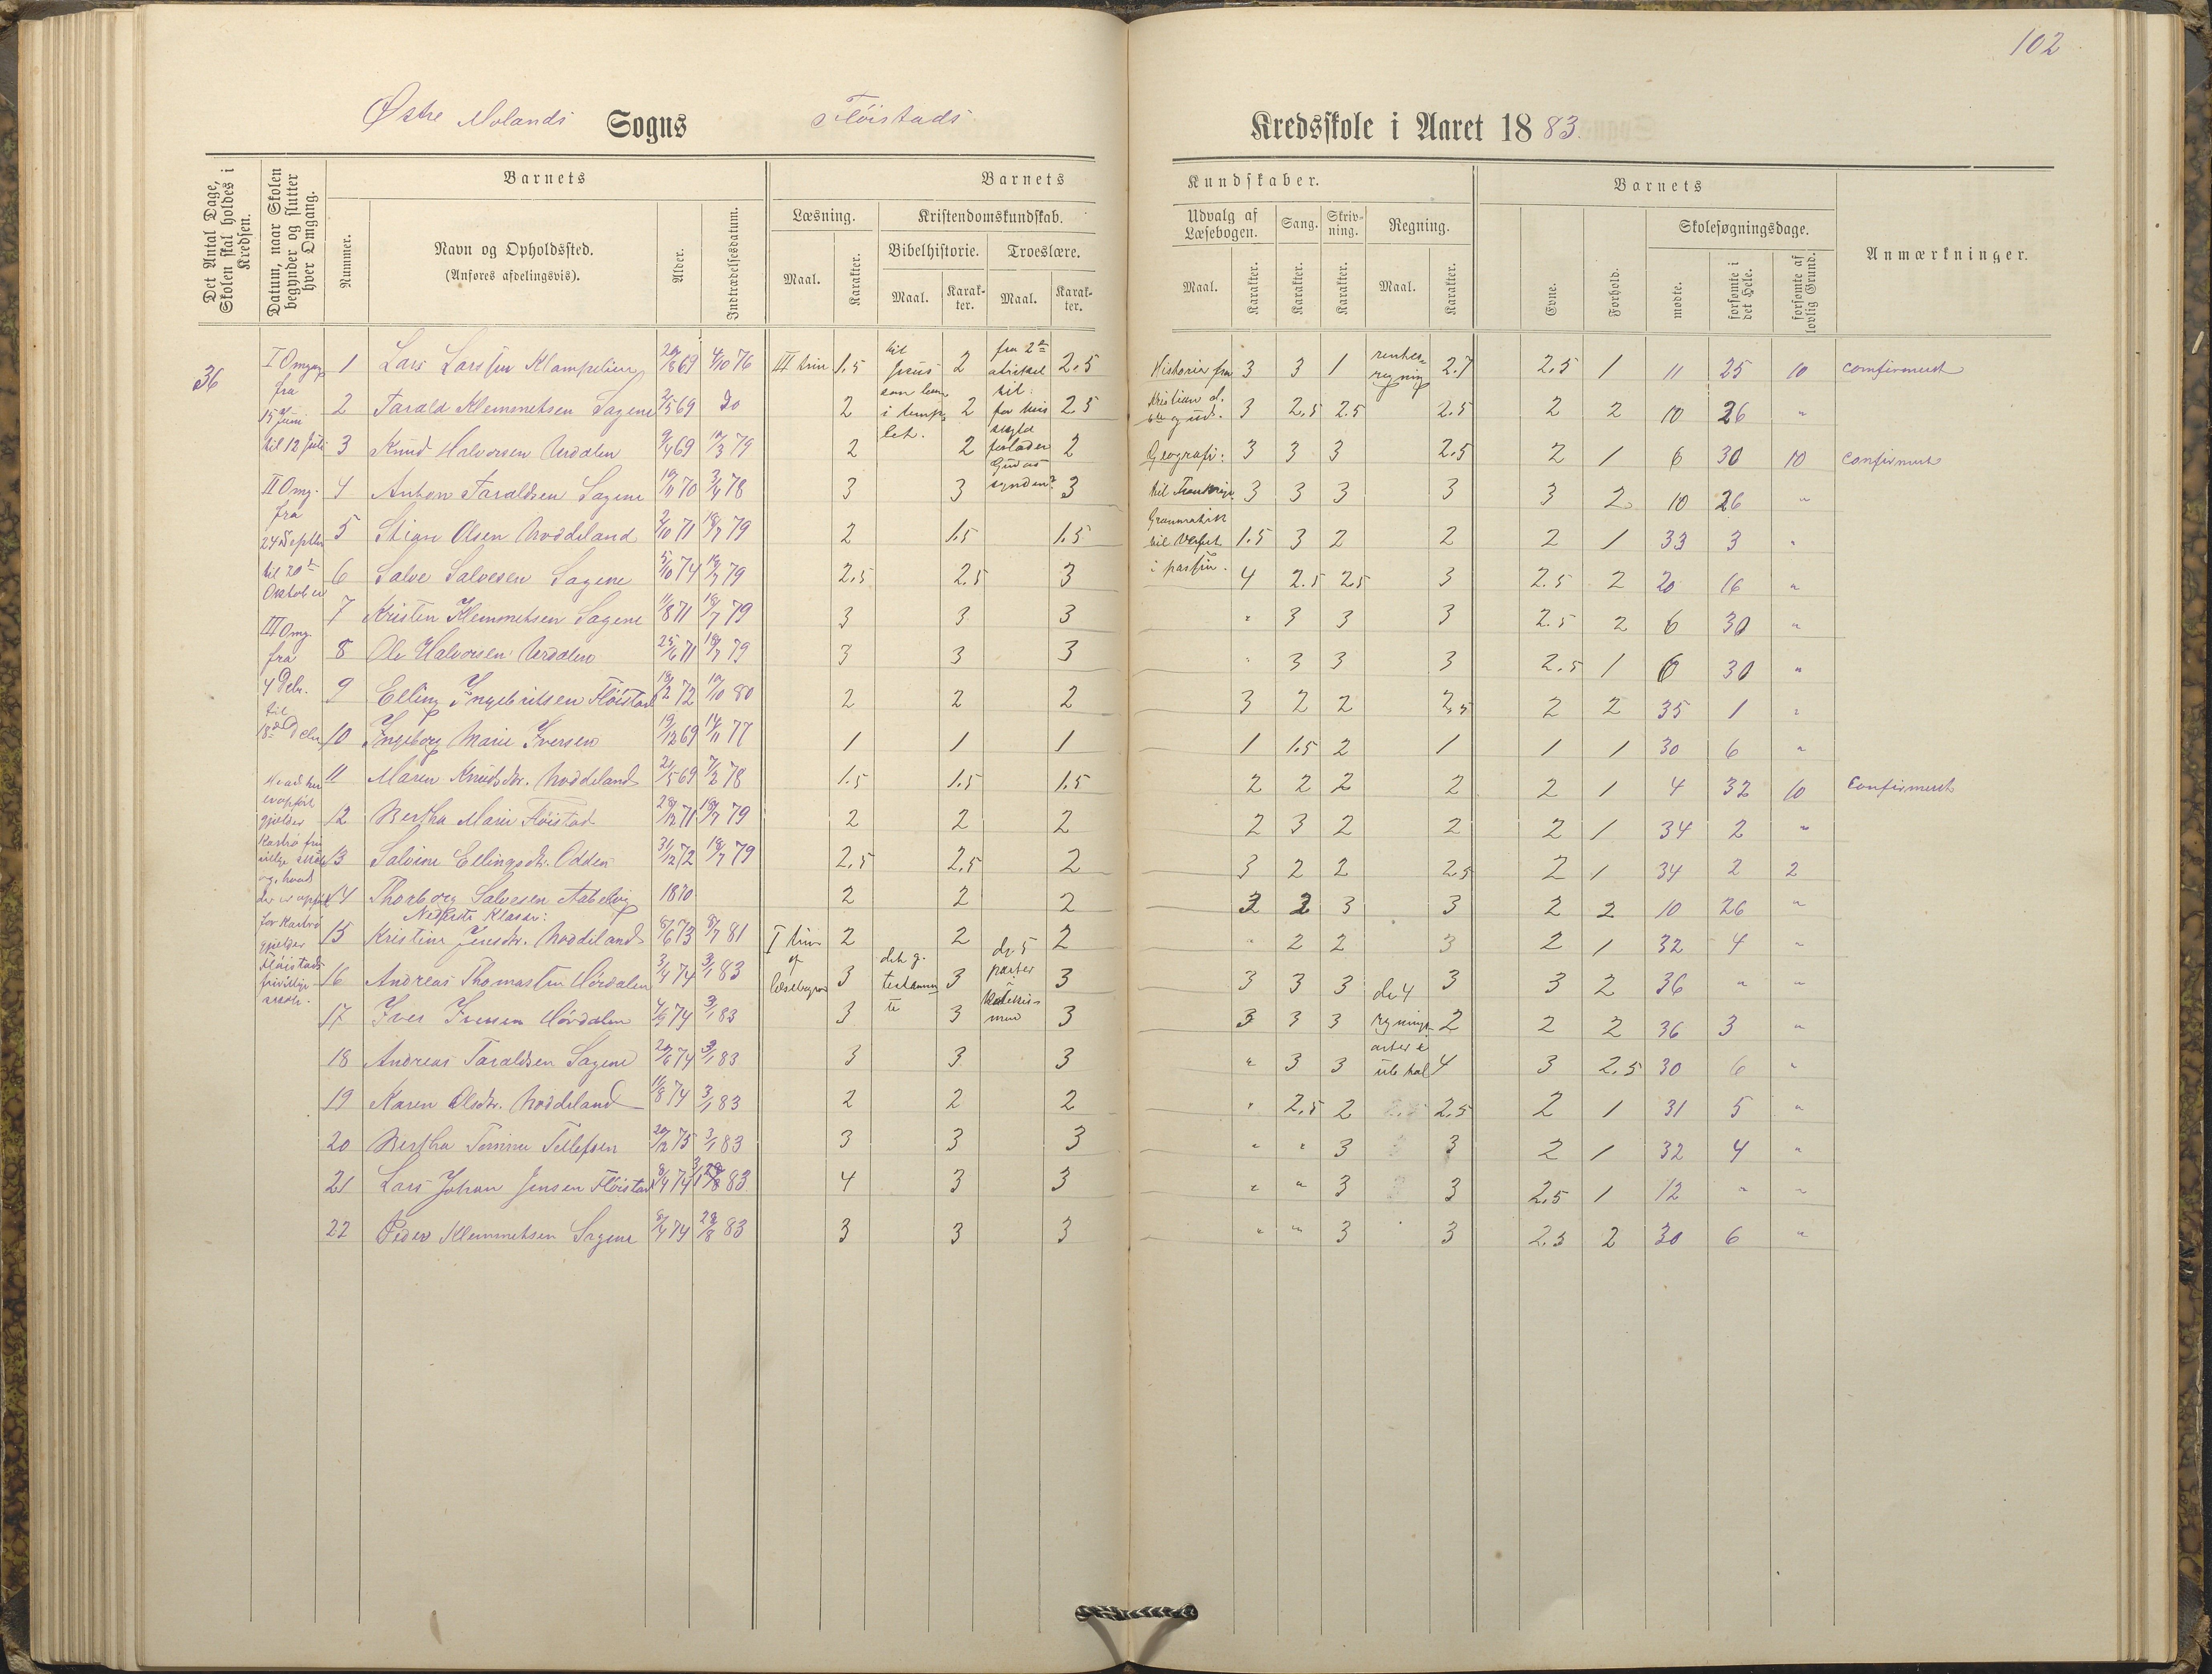 102
Østre Molands Sogns Fløistads Kredsskole i Aaret 1883.
Det Antal Dage, Skolen skal holdes i Kredsen.
Datum, naar Skolen begynder og slutter hver Omgang.
Barnets
Nummer.
Navn og Opholdssted.
(Anføres afdelingsvis).
Alder.
Indtrædelsesdatum.
Barnets Kundskaber.
Læsning.
Maal.
Karakter.
Kristendomskundskab.
Bibelhistorie.
Maal.
Karakter.
Troeslære.
Maal.
Karakter.
Udvalg af Læsebogen.
Maal.
Karakter.
Sang.
Karakter.
Skrivning.
Karakter.
Regning.
Maal.
Karakter.
Barnets
Evne.
Forhold.
Skolesøgningsdage.
mødte.
forsømte i det Hele.
forsømte af lovlig Grund.
Anmærkninger.
36
I Omgang
fra
15 Juni
til 12 Juli
II Omg.
fra
24 Septbr
til 20de
Oktober
III Omg.
fra
4 Debr.
til
18de Debr
1 Lars Larssen Klampelien 20/8 69 4/10 76 III trin 1.5 2 2.5 3 3 1 2.7 2.5 1 11 25 10 comfirmeret
2 Tarald Klemmetsen Sagene 2/5 69 Do 2 2 2.5 3 2.5 2.5 2.5 2 2 10 26 "
3 Knud Halvorsen Urdalen 9/4 69 2 2 2 3 3 3 2.5 2 1 6 30 10 confirmeret
4 Anton Taraldsen Sagene 70 3/4 78 3 3 3 3 3 3 3 3 2 10 26 "
5 Stian Olsen Noddeland 2/10 71 18/7 79 2 1.5 1.5 1.5 3 2 2 2 1 33 3 "
6 Salve Salvesen Sagene 5/10 74 18/7 79 2.5 2.5 3 4 2.5 2.5 3 2.5 2 20 16 "
7 Kristen Klemmetsen Sagene 11/8 71 18/7 79 3 3 3 " 3 3 3 2.5 2 6 30 "
8 Ole Halvorsen Urdalen 25/6 71 18/7 79 3 3 3 " 3 3 3 2.5 1 6 30 "
9 Elling Ingebritsen Fløistad 18/2 72 80 2 2 2 3 2 2 2,5 2 2 35 1 "
10 Ingeborg Marie Iversen 19/12 69 14/11 77 1 1 1 1 1.5 2 1 1 1 30 6 "
11 Maren Knudsdtr. Noddeland 21/5 69 7/2 78 1.5 1.5 1.5 2 2 2 2 2 1 4 32 10 confirmeret
12 Bertha Marie Fløistad 28/12 71 18/7 79 2 2 2 2 3 2 2 2 1 34 2 "
13 Salvine Ellingsdtr. Odden 31/12 72 18/7 79 2.5 2.5 2 3 2 2 2.5 2 1 34 2 2
14 Thorborg Salvesen 1870 2 2 2 3 3 3 2 2 10 26 "
Nederste Klasse:
15 Kristine Jensdtr. Noddeland 8/6 73 8/7 81 I trin 2 2 de 5 2 " 2 2 3 2 1 32 4 "
16 Andreas Thomassen 3/4 74 3/1 83 3 3 parter 3 3 3 3 de 4 3 3 2 36 " "
17 Iver Iversen 74 3/1 83 3 3 3 3 3 3 2 2 2 36 3 "
18 Andreas Taraldsen Sagene 20/6 74 3/1 83 3 3 3 " 3 3 4 3 2.5 30 6 "
19 Karen Olsdtr. Noddeland 11/8 74 3/1 83 2 2 2 " 2.5 2 2.5 2 1 31 5 "
20 Bertha Tomine Tellefsen 20/12 75 3/1 83 3 3 3 " " 3 3 2 1 32 4 "
21 Lars Johan Jensen Fløistad 8/4 74 83 4 3 3 " " 3 3 2.5 1 12 " "
22 Peder Klemmetsen Sagene 8/4 74 29/8 83 3 3 3 " " 3 3 2.5 2 30 6 "
til
Jesus
som
i temp-
let.
fra 2den
til:
Historie fra
Kristian d.
Geografi:
Grammatik
til
rentes-
regning